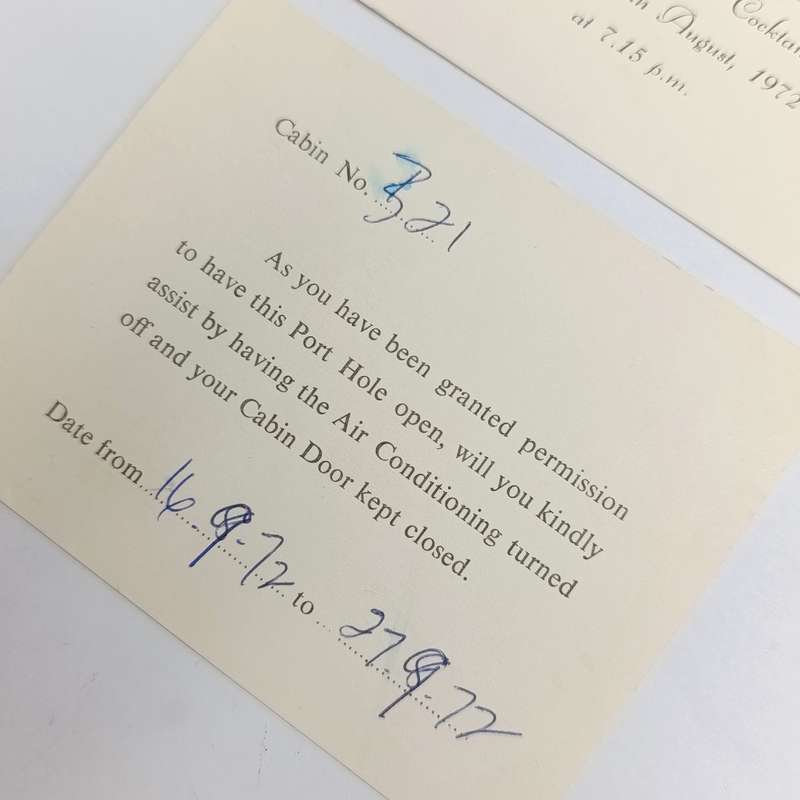 Cocktai
August, 1972
at 7.15 p.m.
Cabin No. 321
As you have been granted permission
to have this Port Hole open, will you kindly
assist by having the Air Conditioning turned
off and your Cabin Door kept closed.
Date from 16.9.72 to 27.9.72